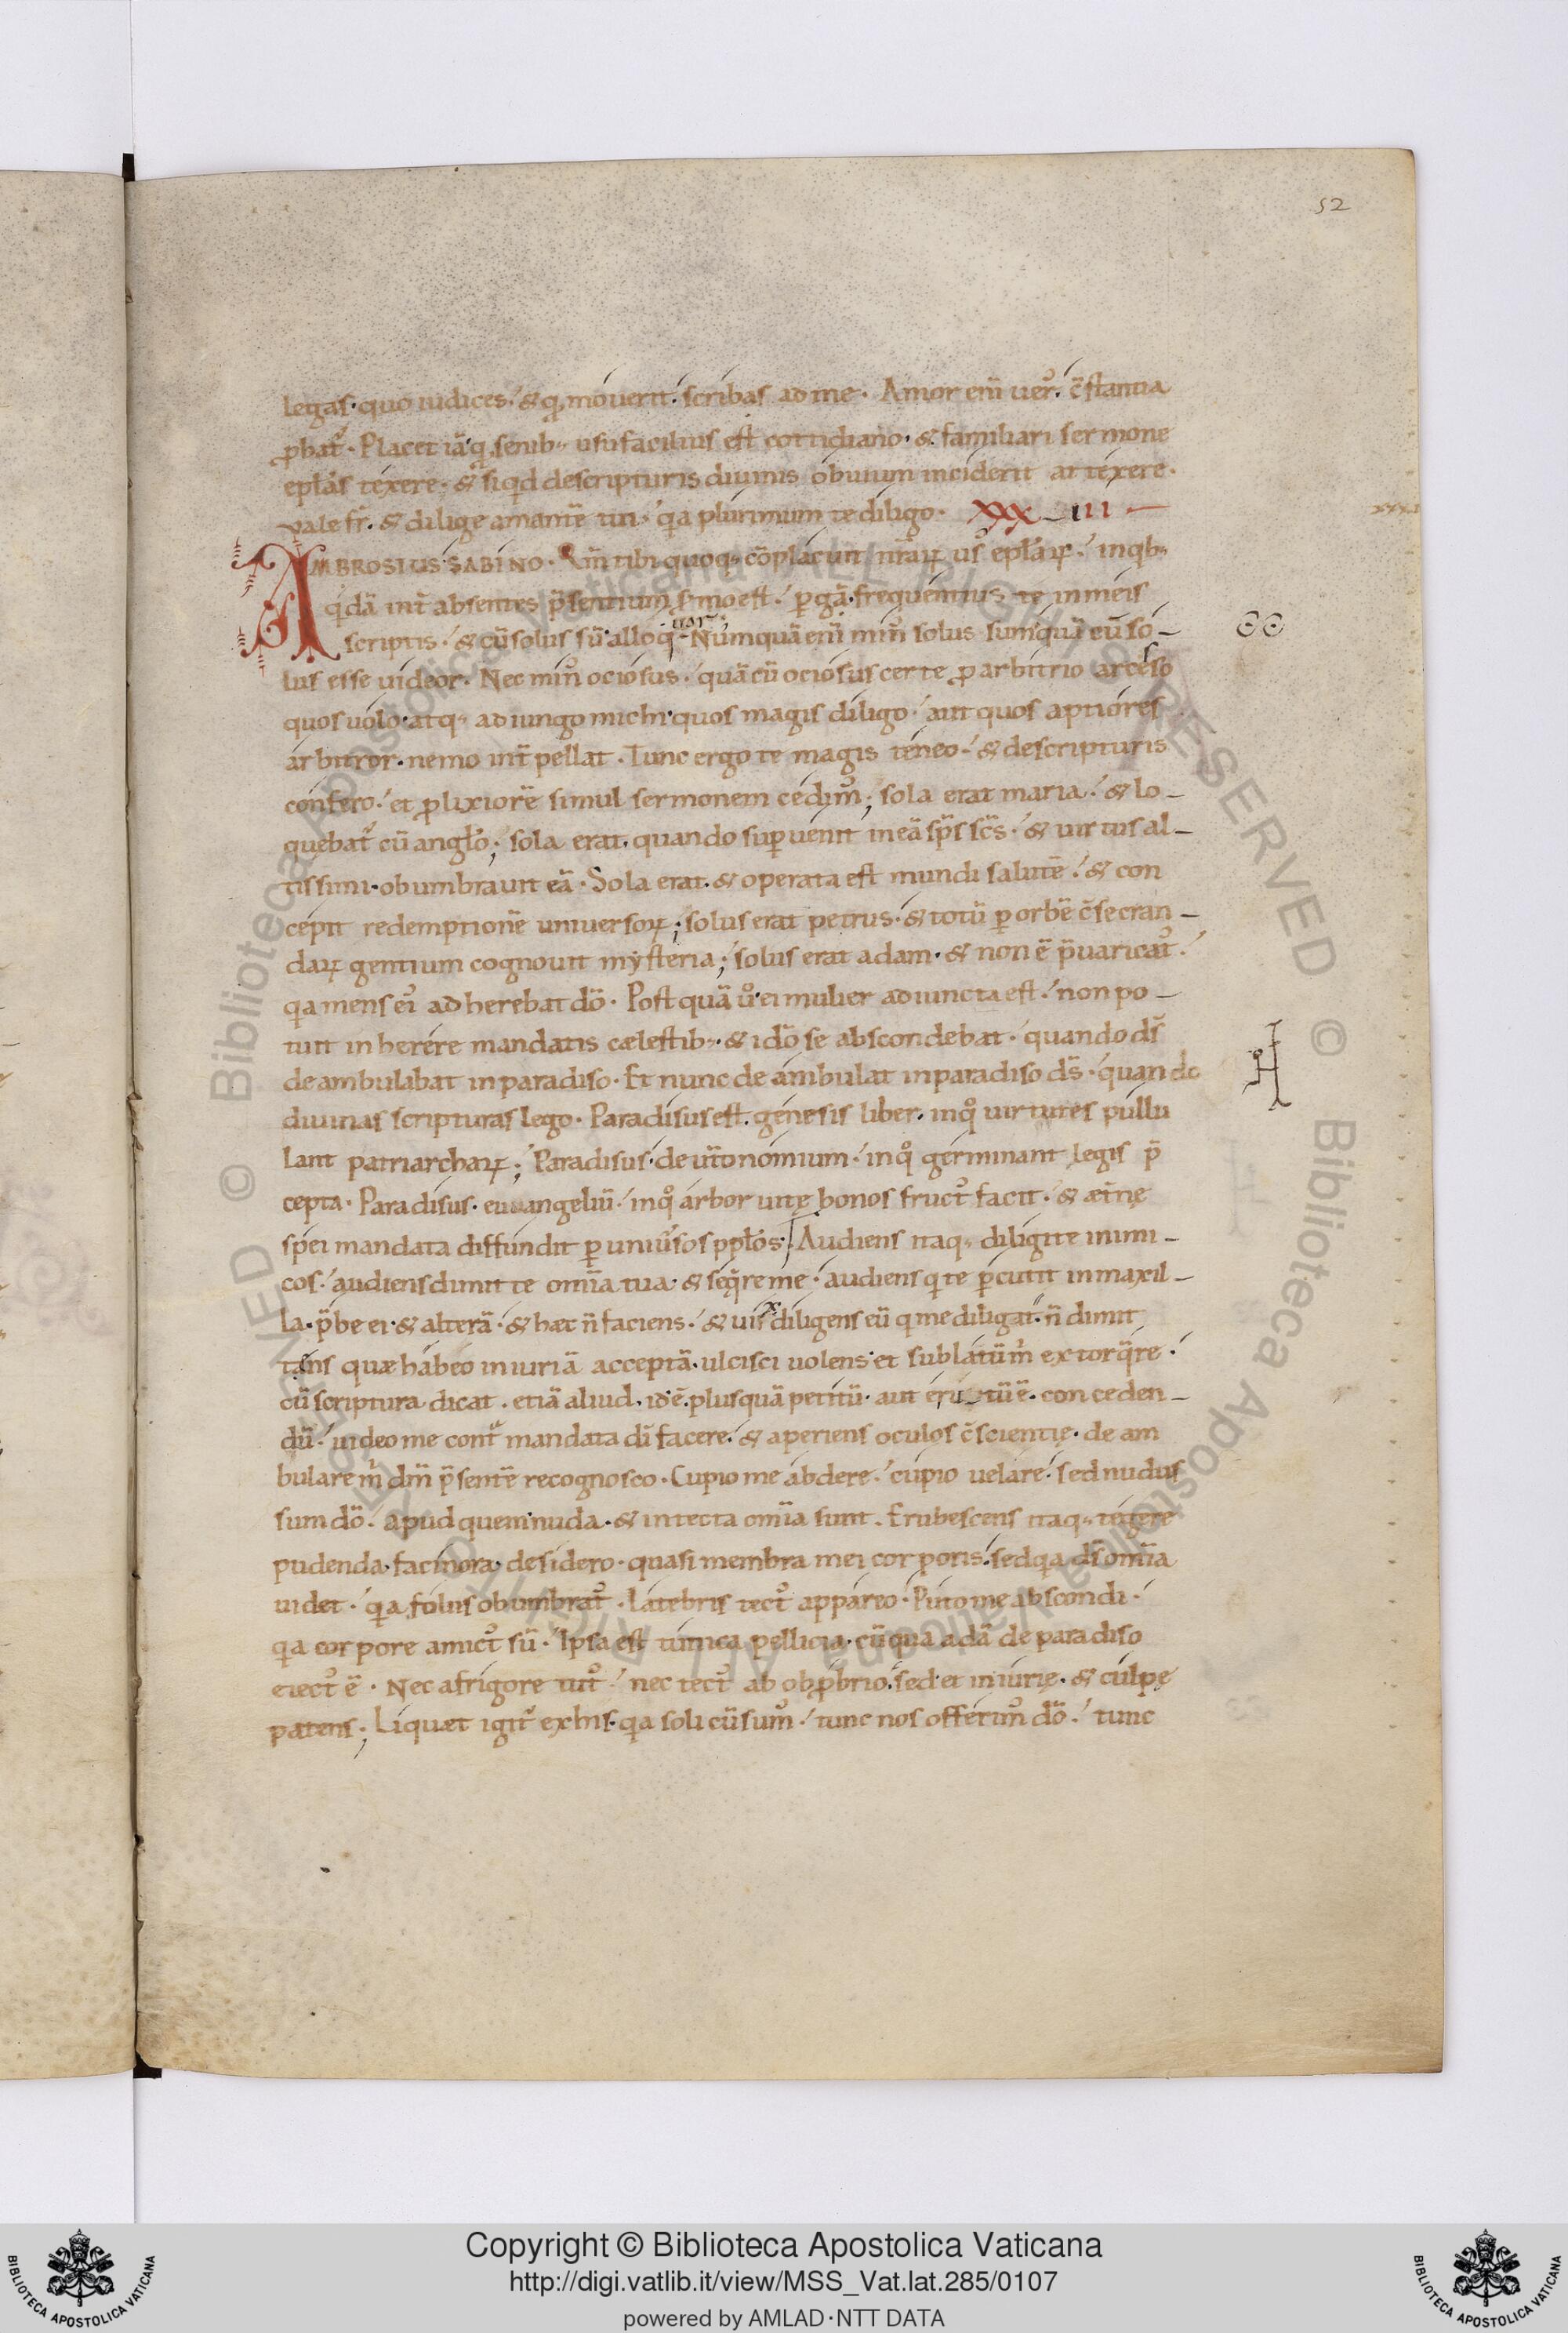 52
legas· quo iudices·́ & q̨ mouerit·́ scribas ad me· Amor eni̅ uer᾽·́ c̅stantia
p̱bat᷒· Placet ia̅ q̨ senib· usu facilius est cottidiano· & familiari sermone
ep̅l̅as texere· & siq̇d de scripturis diuinis obuium inciderit attexere·
vale fr̅· & dilige amante̅ tui·́ q̇a plurimum te diligo· XXX_III
AMBROSIUS SABINO· Qm̅ tibi quoq· co̅placuit nr̅aꝝ us᾽ ep̅l̅aꝝ·́ in qb·
q̇da̅ int̅ absentes p̅sentium s̅mo est·́ ꝑga̅ frequentius te in meis
scriptis·́ & cu̅ solus su̅ alloq̇· Numqua̅ eni̅ min᾽ solus sum qua̅ cu̅ so-
lus esse uideor· Nec min᾽ ociosus·́ qua̅ cu̅ ociosus certe ꝓ arbitrio arceso
quos uolo· atq· adiungo michi quos magis diligo·́ aut quos aptiores
arbitror· nemo int̅pellat· Tunc ergo te magis teneo·́ & de scripturis
confero·́ et ꝓlixiore̅ simul sermonem cedim᾽; sola erat maria·́ & lo-
quebat᷒ cu̅ angl̅o; sola erat· quando suꝑuenit in ea̅ sp̅s sc̅s·́ & uirtus al-
tissimi· obumbrauit ea̅· Sola erat· & operata est mundi salute̅·́ & con
cepit redemptione̅ uniuersoꝝ; solus erat petrus· & totu̅ ꝑ orbe̅ c̅secran-
daꝝ gentium cognouit mysteria; solus erat adam· & non e̅ p̅uaricat᾽·́
q̇a mens ei᾽ adherebat do̅· Postqua̅ u᷎ ei mulier adiuncta est·́ non po-
tuit inherere mandatis cælestib·· & ido̅ se abscondebat· quando ds̅
deambulabat in paradiso· Et nunc deambulat in paradiso ds̅·́ quando
diuinas scripturas lego· Paradisus est· genesis liber· in qͦ uirtutes pullu
lant patriarchaꝝ; Paradisus· deut̅onomium·́ in qͦ germinant legis p̅
cepta· Paradisus· euuangeliu̅·́ in qͦ arbor uitę bonos fruct᾽ facit·́ & æt̅nę
spei mandata diffundit ꝑ uniu̅sos ppl̅os· Audiens itaq· diligite inimi-
cos·́ audiens dimitte omi̅a tua· & seq̅re me· audiens q̇ te ꝑcutit in maxil-
la· p̅be ei & altera̅· & hæc n̅ faciens·́ & uix diligens eu̅ q̇ me diligat· n̅ dimit
tens quæ habeo iniuria̅ accepta̅· ulcisci uolens et sublatu̅ m̅ extorq̅re·́
cu̅ scriptura dicat· etia̅ aliud· id e̅· plusqua̅ petitu̅· aut eru_tu̅ e̅· conceden-
du̅·́ uideo me cont̅ mandata di̅ facere· & aperiens oculos c̅scientię· deam
bulare m̅ dm̅ p̅sente̅ recognosco· Cupio me abdere·́ cupio uelare·́ sed nudus
sum do̅· apud quem nuda· & intecta omi̅a sunt· Erubescens itaq· tegere
pudenda facinora desidero· quasi membra mei corporis·́ sed q̇a ds̅ omi̅a
uidet·́ q̇a foliis obumbrat᾽· Latebris tect᾽ appareo· Puto me abscondi·́
q̇a corpore amict᾽ su̅·́ Ipsa est tunica pellicia· cu̅ qua ada̅ de paradiso
eiect᾽ e̅· Nec a frigore tut᾽·́ nec tect᾽ ab obꝓbrio·́ sed et iniurię· & culpę
patens; Liquæt igit᷒ ex his· q̇a soli cu̅ sum᾽·́ tunc nos offerim᾽ do̅·́ tunc
Copyright © Biblioteca Apostolica Vaticana
http://digi.vatlib.it/view/MSS_Vat.lat.285/0107
powered by AMLAD·NTT DATA
BIBLIOTECA APOSTOLICA VATICANA
BIBLIOTECA APOSTOLICA VATICANA